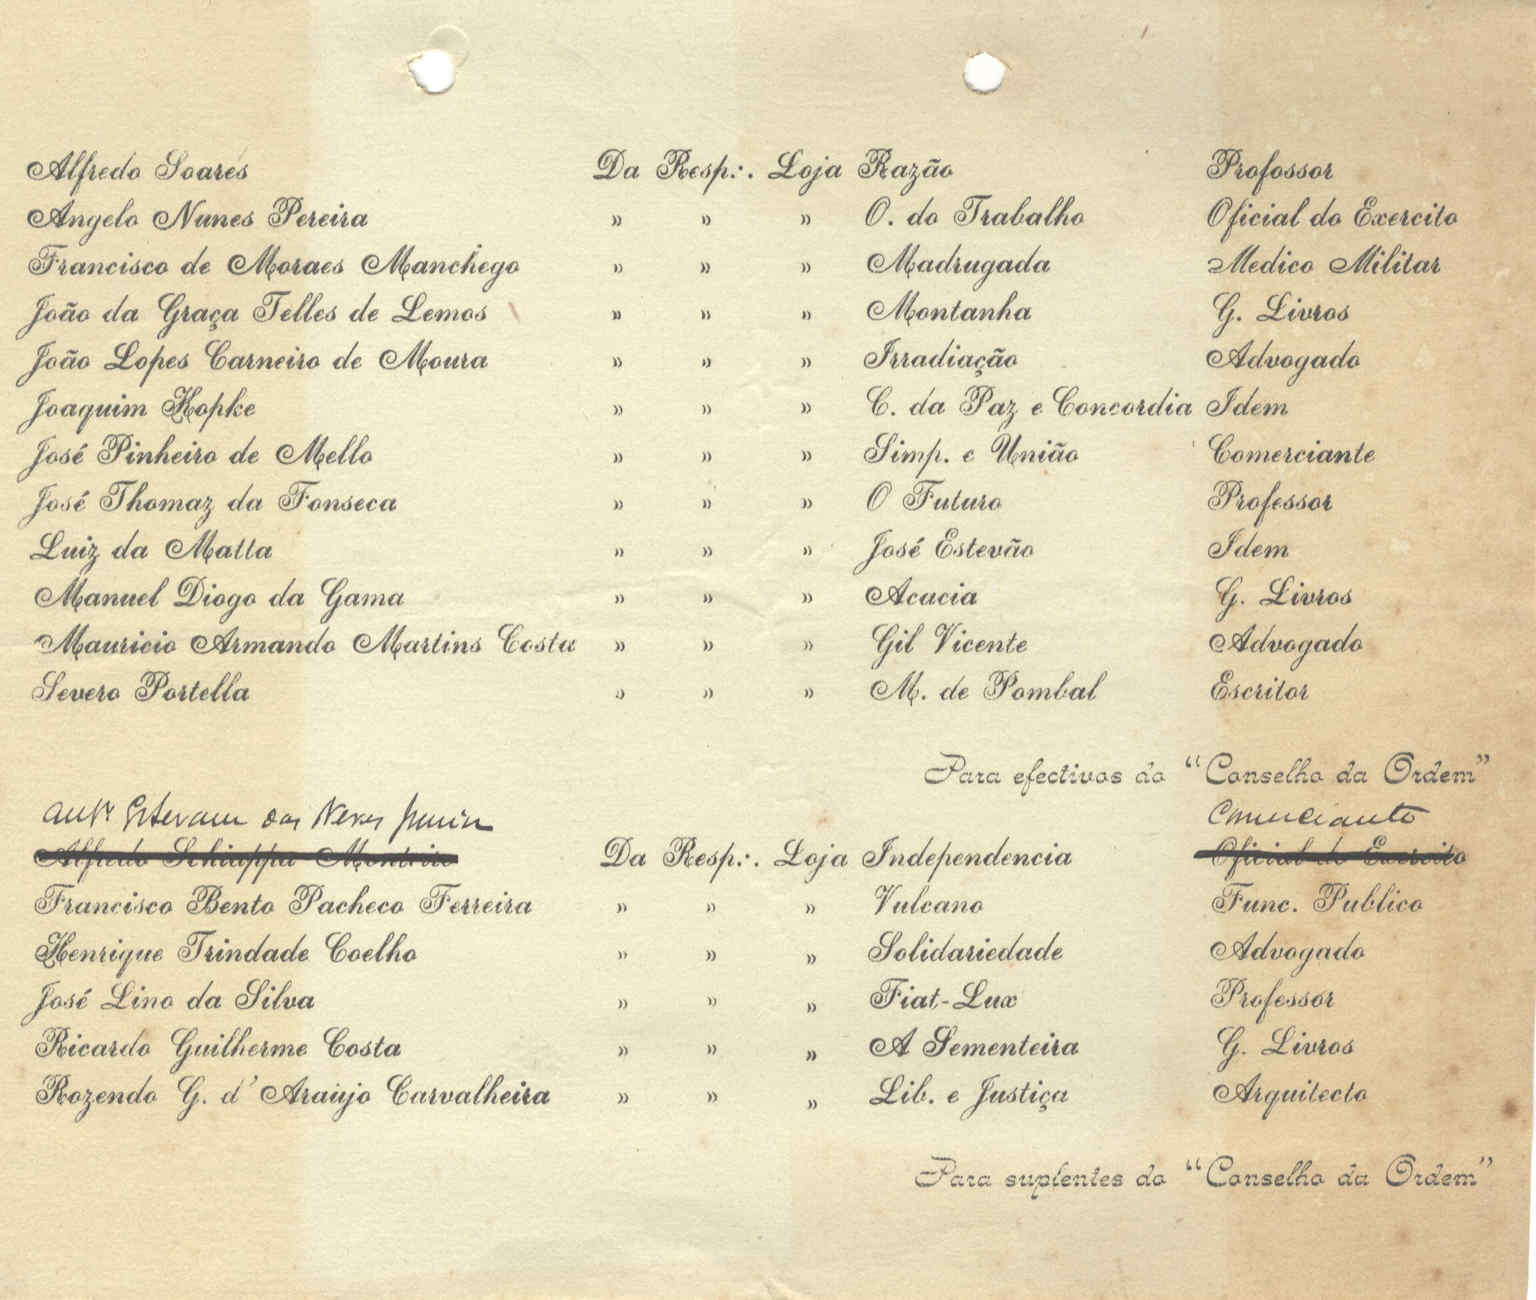 Alfredo Soares Da Resp∴ Loja Razão Profossor
Angelo Nunes Pereira » » » O. do Trabalho Oficial do Exercito
Francisco de Moraes Manchego » » » Madrugada Medico Militar
João da Graça Telles de Lemos » » » Montanha G. Livros
João Lopes Carneiro de Moura » » » Irradiação Advogado
Joaquim Kopke » » » C. da Paz e Concordia Idem
José Pinheiro de Mello » » » Simp. e União Comerciante
José Thomaz da Fonseca » » » O Futuro Professor
Luiz da Matta » » » José Estevão Idem
Manuel Diogo da Gama » » » Acacia G. Livros
Mauricio Armando Martins Costa » » » Gil Vicente Advogado
Severo Portella » » » M. de Pombal Escritor
Para efectivos do "Conselho da Ordem"
Estevam das Neves Comerciante
Alfredo Schiappa Monteiro Da Resp∴ Loja Independencia Oficial do Exercito
Francisco Bento Pacheco Ferreira » » » Vulcano Func. Publico
Henrique Trindade Coelho » » » Solidariedade Advogado
José Lino da Silva » » » Fiat-Lux Professor
Ricardo Guilherme Costa » » » A Sementeira G. Livros
Rozendo G. d'Araujo Carvalheira » » » Lib. e Justiça Arquitecto
Para suplentes do "Conselho da Ordem"